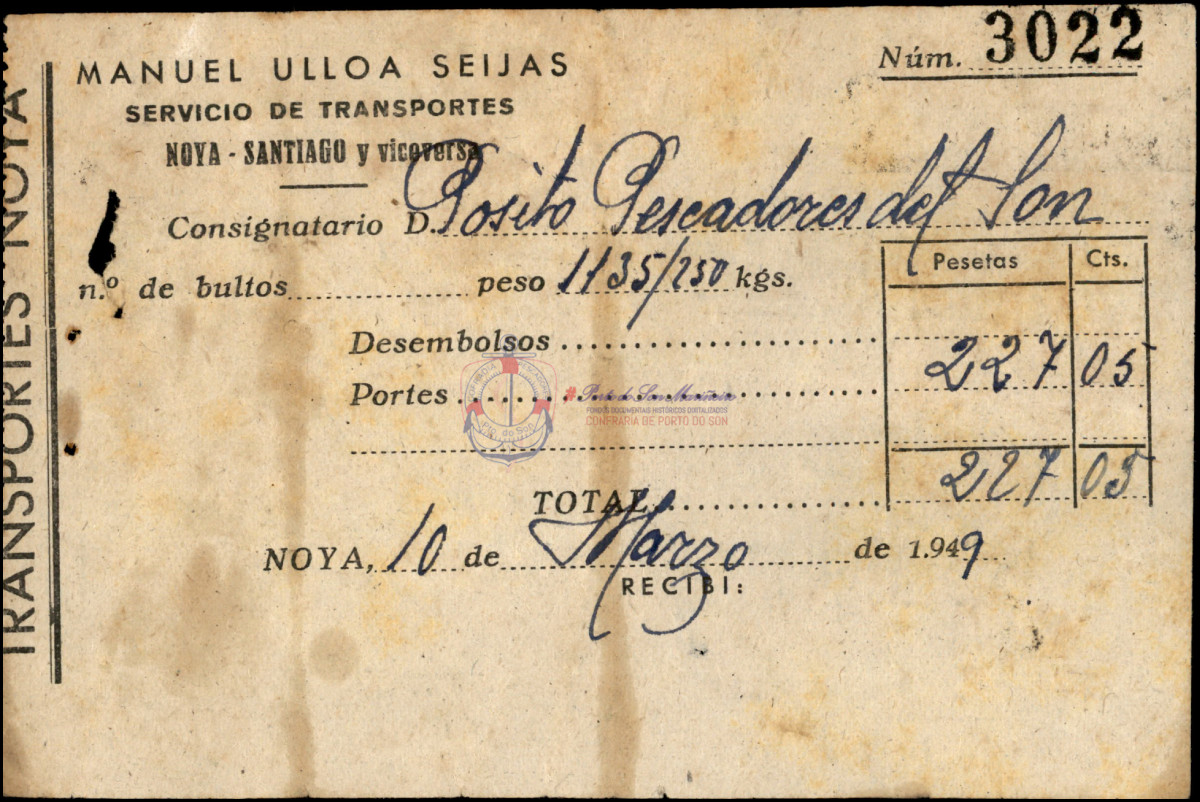 TRANSPORTES NOYA
MANUEL ULLOA SEIJAS
SERVICIO DE TRANSPORTES
NOYA - SANTIAGO y viceversa
Núm. 3022
Consignatario D. Posito Pescadores del Son
n.º de bultos peso 1135/250 kgs.
Pesetas Cts.
Desembolsos
Portes 227 05
TOTAL 227 05
NOYA, 10 de Marzo de 1.949
RECIBI:
Porto do Son Mariñeiro
FONDOS DOCUMENTAIS HISTÓRICOS DIGITALIZADOS
CONFRARÍA DE PORTO DO SON
Pto. do Son